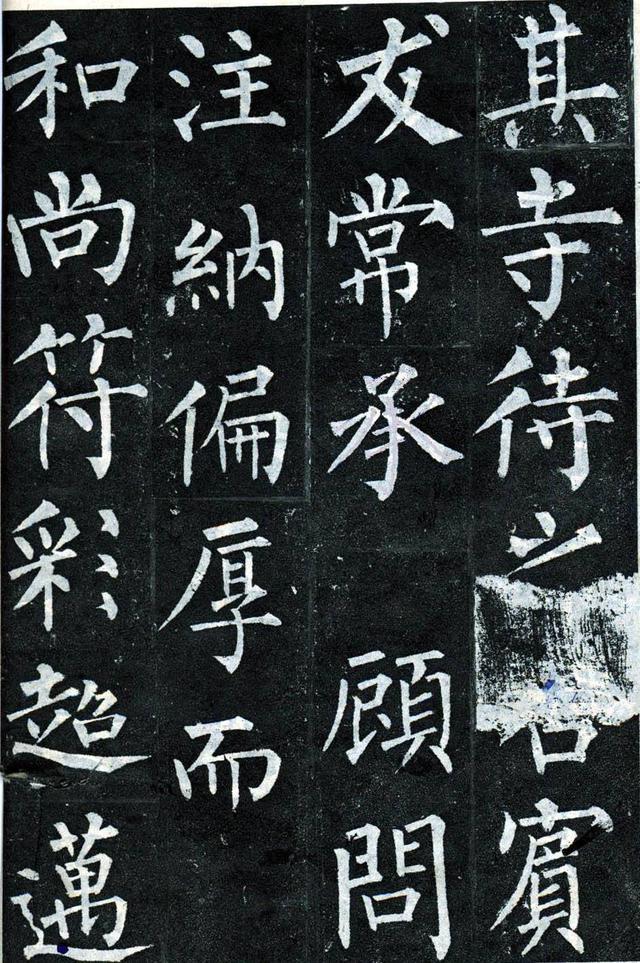 其寺待之賓
友常承 顧問
注納偏厚而
和尚符彩超邁